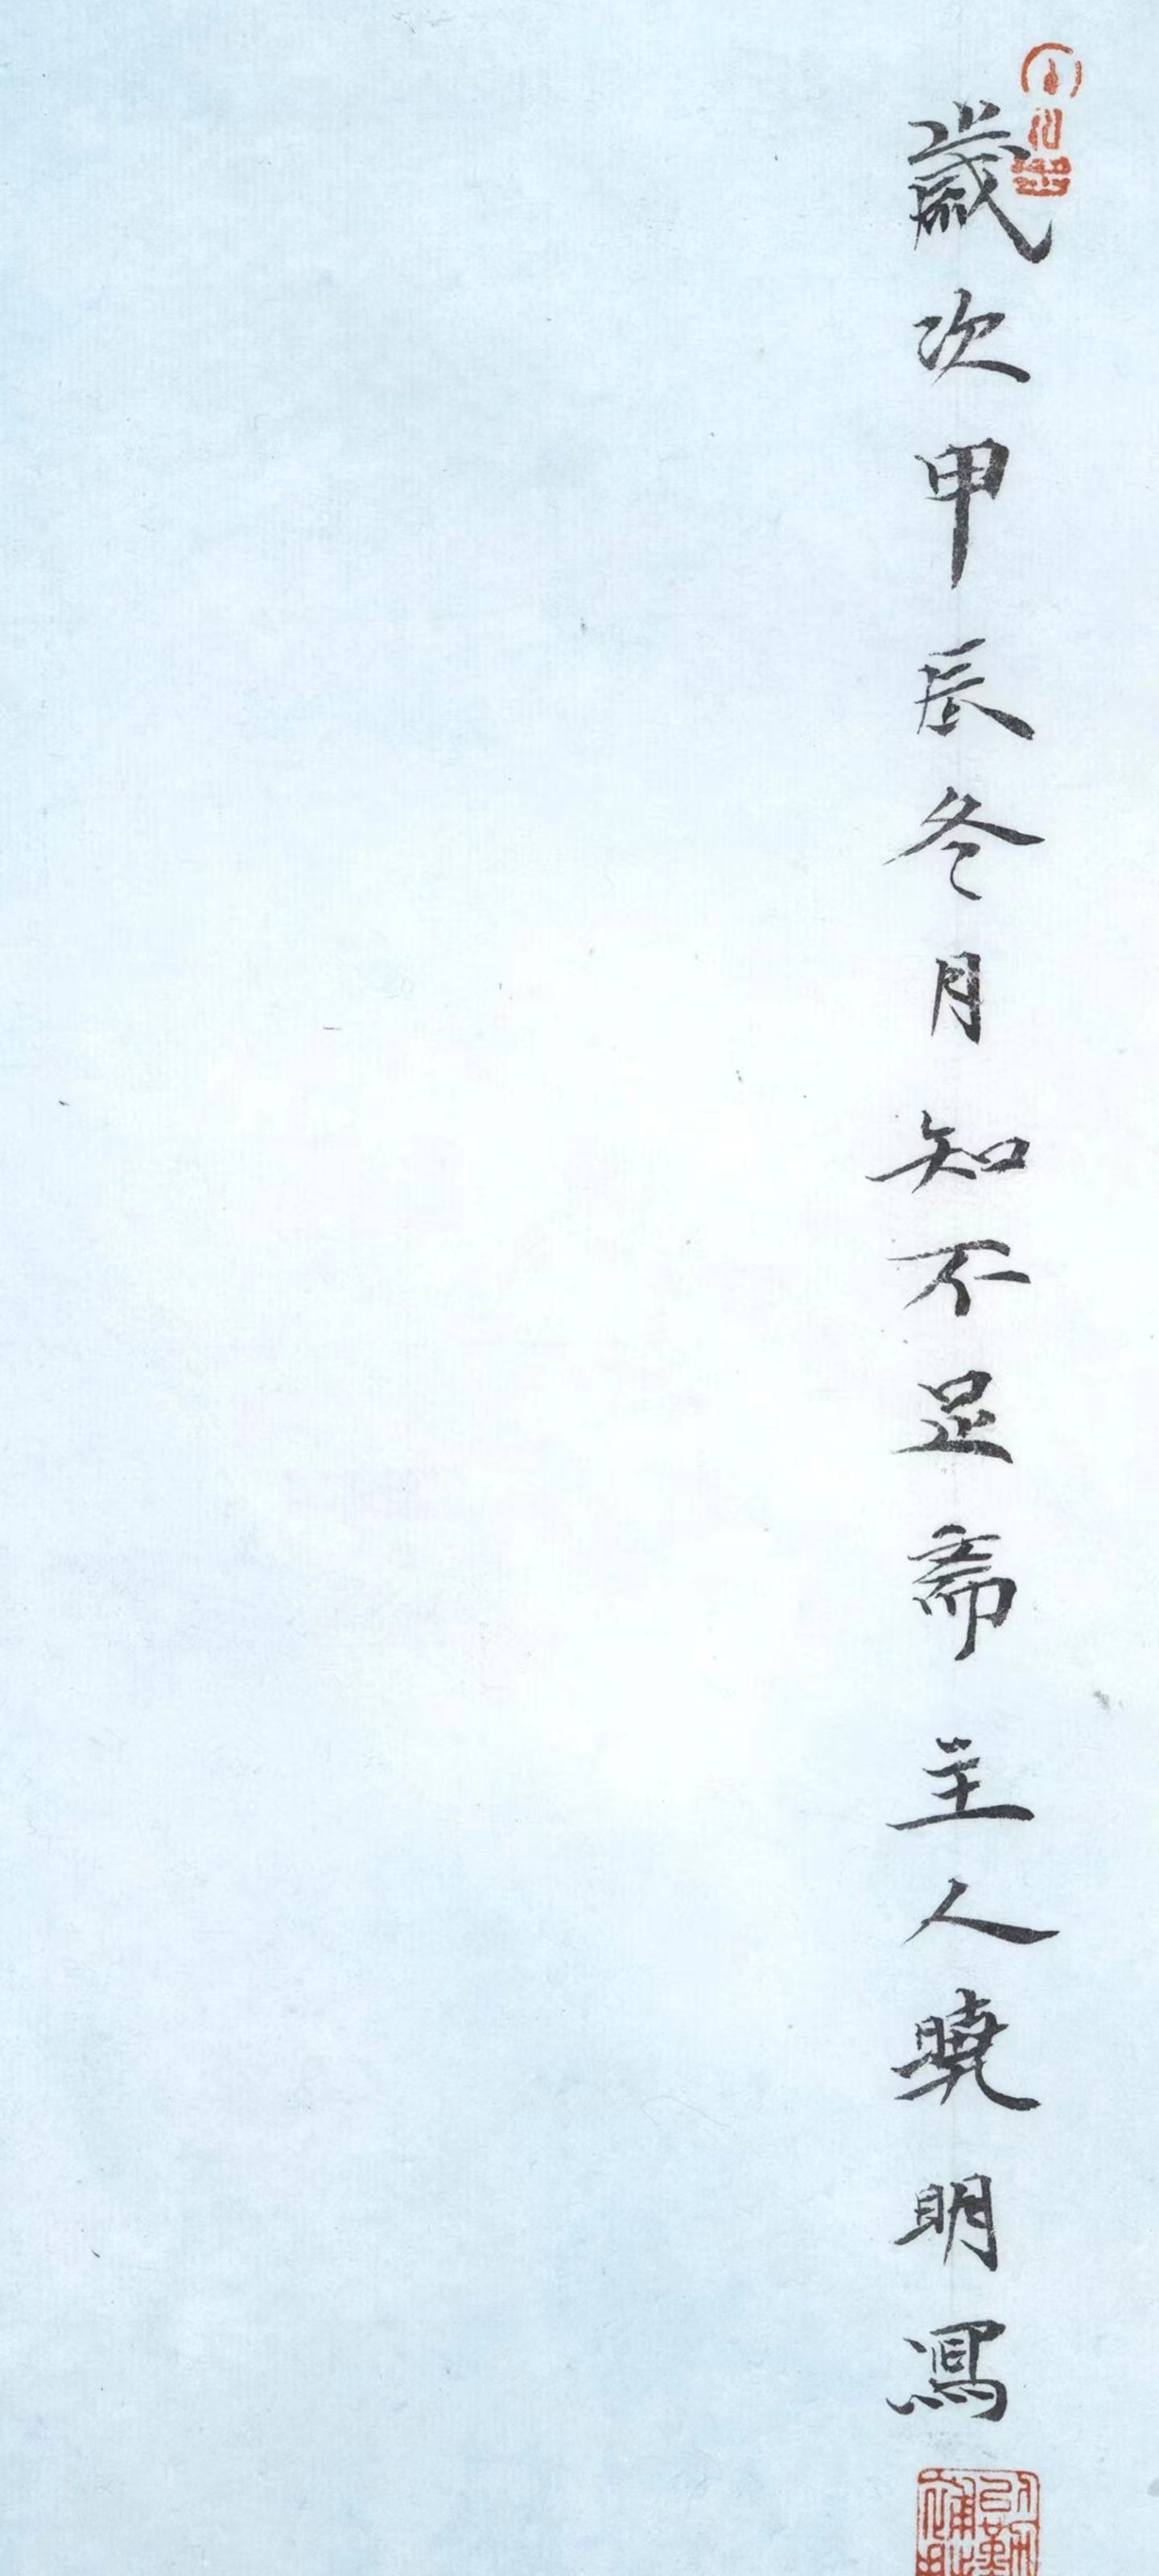 歲次甲辰冬月知不足斋主人曉明寫